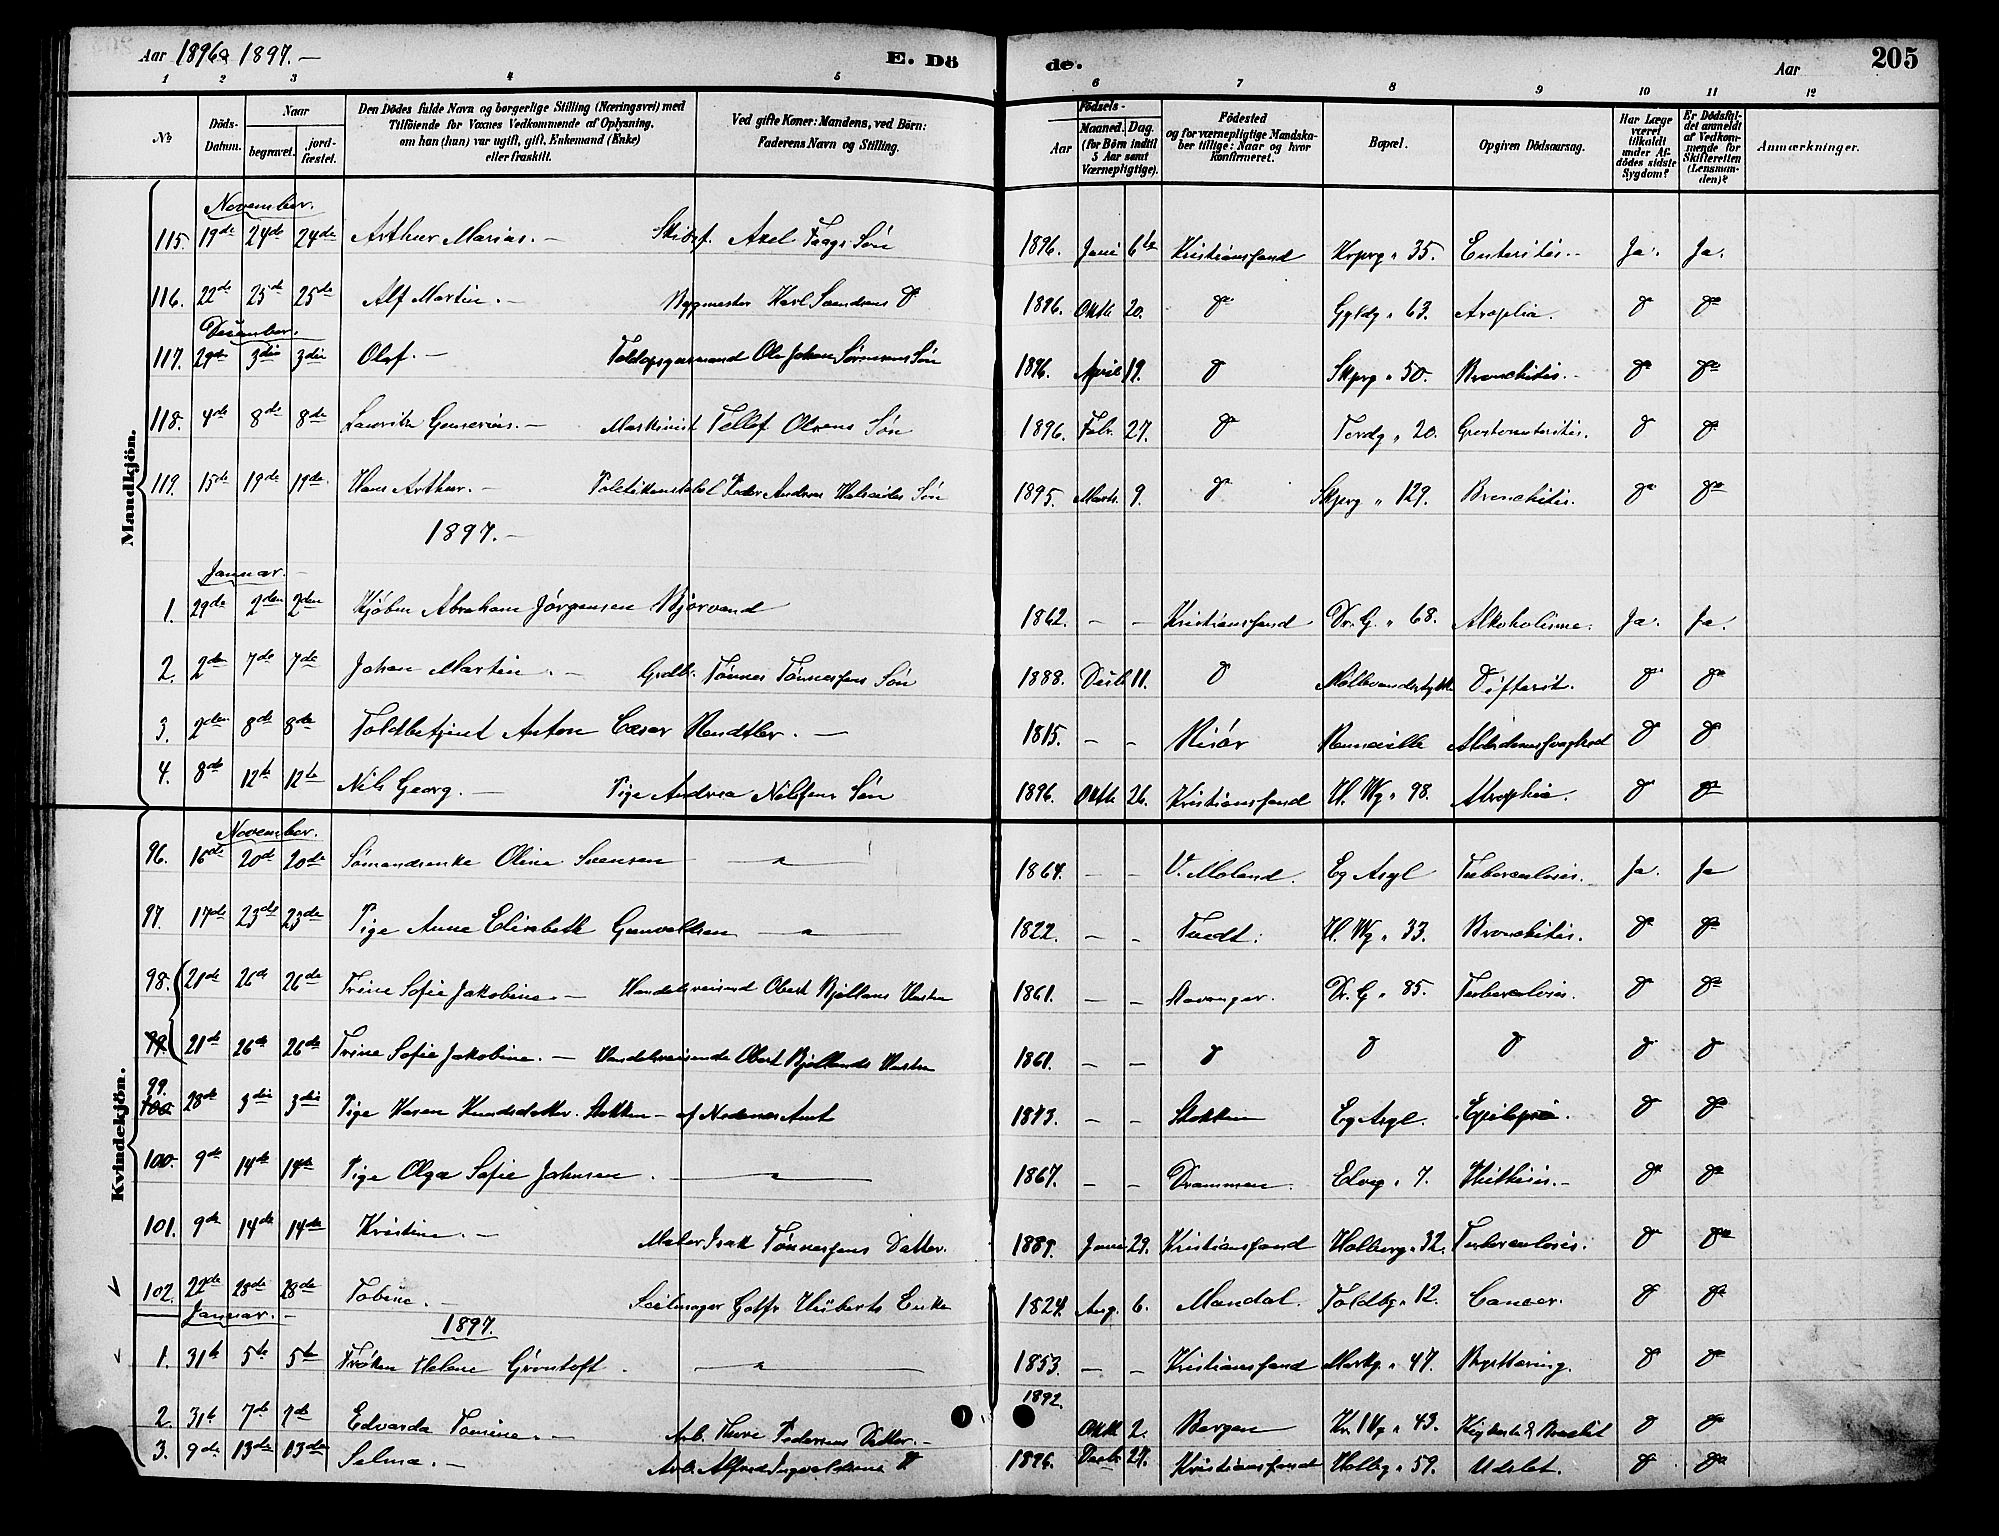 Aar 1896 & 1897. —
E. Dö de.
Aar
205
1 2 3 4 5 6 7 8 9 10 11 12
No
Döds-Datum.
Naar
begravet. jord-fæstet.
Den Dödes fulde Navn og borgerlige Stilling (Næringsvei) med
Tilföiende for Voxnes Vedkommende af Oplysning,
om han (hun) var ugift, gift, Enkemand (Enke)
eller fraskilt.
Ved gifte Koner: Mandens, ved Börn:
Faderens Navn og Stilling.
Födsels-
Aar
Maaned. Dag.
(for Börn indtil
5 Aar samt
Værnepligtige).
Födested
og for værnepligtige Mandska-
ber tillige: Naar og hvor
konfirmeret.
Bopæl.
Opgiven Dödsaarsag.
Har Læge
været
tilkaldt
under Af-
dödes sidste
Sygdom?
Er Dödsfal-
det anmeldt
af Vedkom-
mende for
Skifteretten
(Lensman-
den)?
Anmærkninger.
Mandkjön.
November.
115. 19de 24de 24de Arthur Marius. — Axel Faags Søn 1896. Juni 6te Kristianssand 35. Enteritis. — Ja. Ja.
116. 22de 25de 25de Alf Martin. — Karl Svendsens D 1896. Oktb 20. D Gyldg " 63. Atrophia. D Do
December.
117. 29de 3die 3die Olaf. — Toldopsynsmand Ole Johan Sørensens Søn 1896. April 19. D Skprg " 50. Bronchitis. — Do Do
118. 4de 8de 8de — Tellef Olsens Søn 1896. Febr. 27. D Tordg " 20. D D
119. 15de 19de 19de Hans Arthur. — Politikonstabel Peder Andreas Søn 1895. Marts. 9. D Skprg " 129. Bronchitis. Do Do
1897. —
Januar. —
1. 29de 2den 2den Kjøbm Abraham Jørgensen Bjorvand 1862. — — Kristianssand Dr. G. " 68. Alkoholisme. Ja. Ja.
2. 2den 7de 7de Johan Martin. — Tønnes Tønnessens Søn 1888. Decb 11. D Difterit. Do Do
3. 2den 8de 8de Toldbetjent Anton Cæsar — 1815. — — Risør Alderdomssvaghed D D
4. 8de 12te 12te Nils Georg. — Pige Andrea Nilssens Søn 1896. Oktb 26. Kristianssand H. Wg " 98. Atrophia. D Do
Kvindekjön.
November.
96. 16de 20de 20de Sømandsenke Oline Svensen — " — 1864. — — V. Moland. Eg Asyl Tuberculosis. Ja. Ja
97. 17de 23de 23de Pige Anne Elisabeth Gunvaldsen — " — 1822. — — Tvedt. H. Wg " 33. Bronchitis. D Do
98. 21de 26de 26de Trine Sofie Jakobine. — Handelsreisend Obert Hustru 1861. — — Stavanger. Dr. G " 85. Tuberculosis. D Do
99. 21de 26de 26de Trine Sofie Jakobine. — Handelsreisende Obert Bjellands Hustru 1861. — — D D D D D
99. 100. 28de 3die 3die Pige Karen Knudsdatter Stokken — af Nedenes Amt 1873. — — Stokken Eg Asyl. Epilepsi. D Do
100. 9de 14de 14de Pige Olga Sofie Johnsen. — " — 1867. — — Drammen. Elveg " 7. Phthisis. — Do Do
101. 9de 14de 14de Kristine. — Maler Isak Tønnessens Datter. 1889. Juni 29. Kristianssand Holberg " 32. Tuberculosis. D Do
102. 22de 28de 28de Tobine. — Seilmager Enke 1824. Aug. 6. Mandal. Toldbg " 12. Cancer. D Do
Januar. —
1897.
1. 31te 5te 5te Frøken Helene Grøntoft. — " — 1853. — — Kristianssand Markg " 47. D Do
2. 31te 7de 7de Edvarda — Arb. Pedersens Datter. — 1892. Oktb 2. Bergen 43. D Do
3. 9de 13de 13de Selma. — Arb. Alfred Ingvaldsens D 1896. Decb 27. Kristianssand Holbg " 59. Udslet. D Do